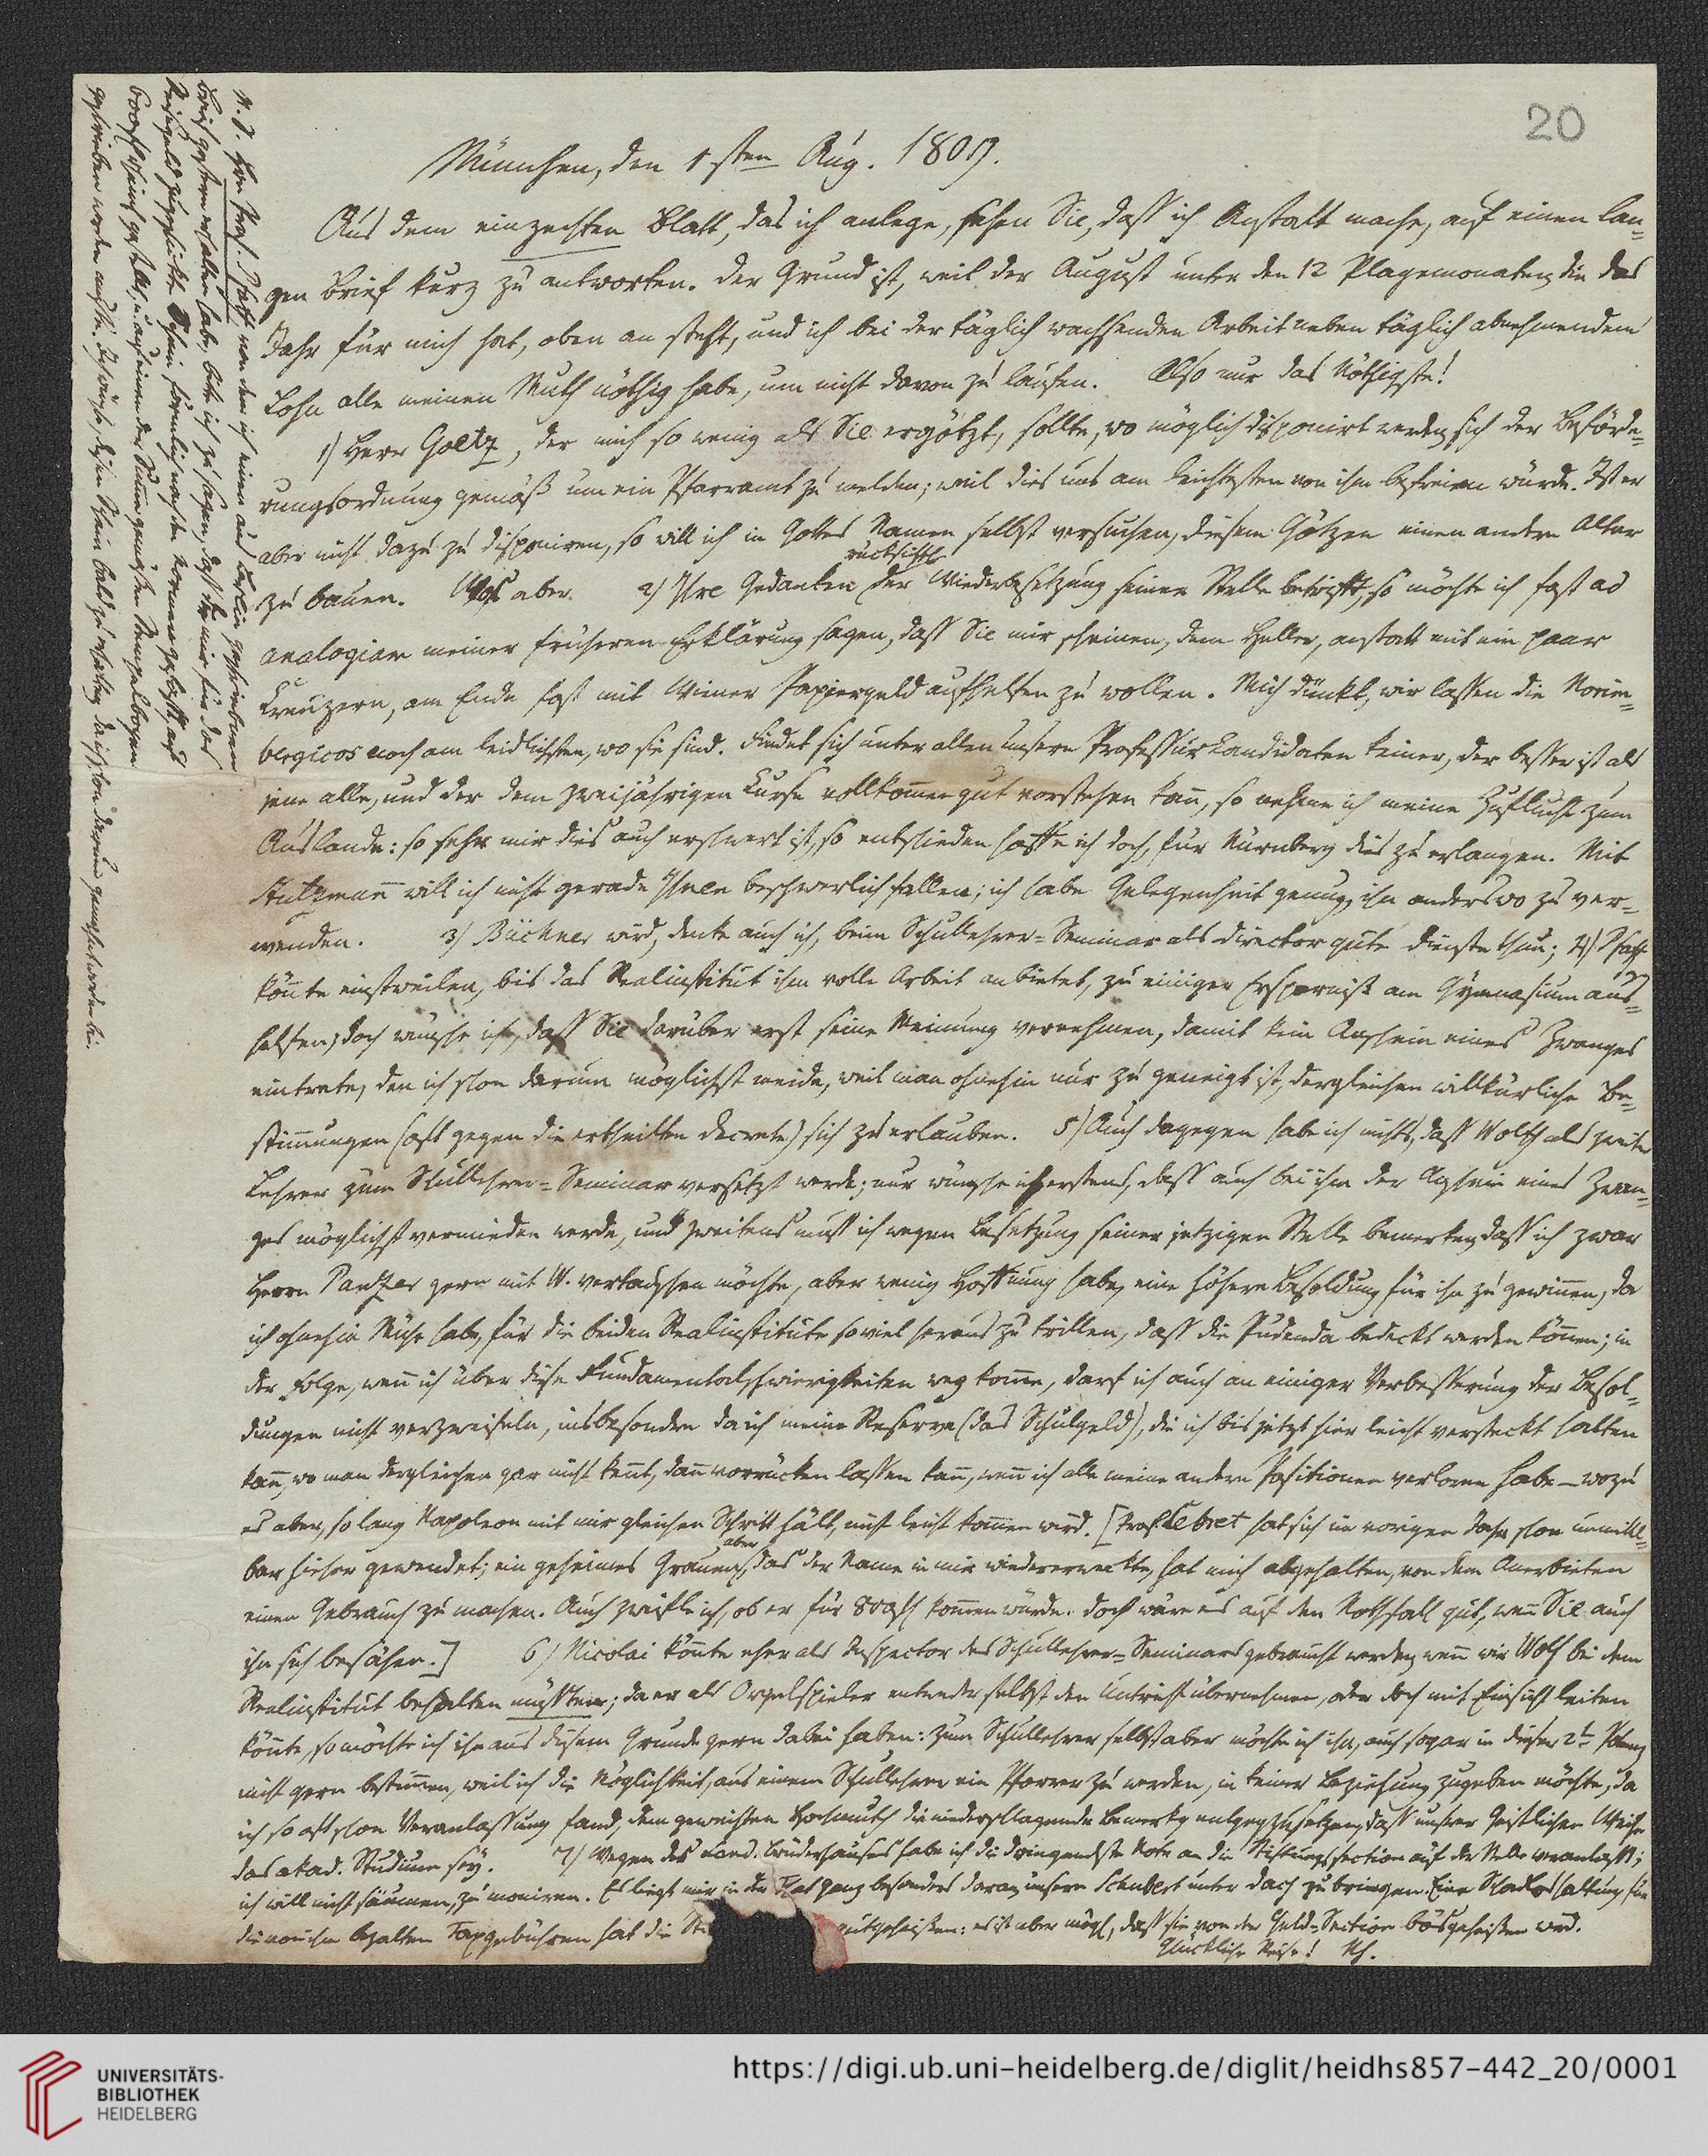 20
München, den 1sten Aug. 1809.
Aus dem einzechten Blatt, das ich anlege, sehen Sie, daß ich Anstalt mache, auf einen lan-
gen Brief kurz zu antworten. Der Grund ist, weil der August unter den 12 Plagemonaten, die das
Jahr für mich hat, oben an steht, und ich bei der täglich wachsenden Arbeit neben täglich abnehmendem
Lohn alle meinen Muth nöthig habe, um nicht davon zu laufen. Also nur das Nöthigste!
1) Herr Goetz, der mich so wenig als Sie ergötzt, sollte, wo möglich disponirt werden, sich der Beförde-
rungsordnung gemäß um ein Pfarramt zu melden; weil dies uns am leichtesten von ihm befreien würde. Ist er
aber nicht dazu zu disponiren, so will ich in Gottes Namen selbst versuchen, diesem Götzen einen andern Altar
zu bauen. Was aber 2) Ihre Gedanken rücksichtl. der Wiederbesetzung seiner Stelle betrifft, so möchte ich fast ad
analogiam meiner früheren Erklärung sagen, daß Sie mir scheinen, dem Heller, anstatt mit ein paar
Kreuzern, am Ende fast mit Wiener Papiergeld aufhelfen zu wollen. Mich dünkt, wir lassen die Norim-
bergicos noch am leidlichsten, wo sie sind. Findet sich unter allen unsern Professur Kandidaten keiner, der besser ist als
jene alle, und der dem zweijährigen Kurse vollkommen gut vorstehen kann, so nehme ich meine Zuflucht zum
Auslande: so sehr mir dies auch erschwert ist, so entschieden hoffe ich doch, für Nürnberg dies zu erlangen. Mit
Stutzmann will ich nicht gerade Ihnen beschwerlich fallen; ich habe Gelegenheit genug, ihn anderswo zu ver-
wenden. 3) Büchner wird, denke auch ich, beim Schullehrer-Seminar als Director gute Dienste thun; 4) Pfaff
könnte einstweilen, bis das Realinstitut ihm volle Arbeit anbietet, zu einiger Ersparniß am Gymnasium aus-
helfen; doch wünsche ich, daß Sie darüber erst seine Meinung vernehmen, damit kein Anschein eines Zwanges
eintrete, den ich schon darum möglichst meide, weil man ohnehin nur zu geneigt ist, dergleichen willkürliche Be-
stimmungen (oft gegen die ertheilten Decrete) sich zu erlauben. 5) Auch dagegen habe ich nichts, daß Wolff als zweiter
Lehrer zum Schullehrer-Seminar versetzt werde; nur wünsche ich erstens, daß auch bei ihm der Anschein eines Zwan-
ges möglichst vermieden werde, und zweitens muß ich wegen Besetzung seiner jetzigen Stelle bemerken, daß ich zwar
Herrn Panzer gern mit W. vertauschen möchte, aber wenig Hoffnung habe, eine höhere Besoldung für ihn zu gewinnen, da
ich ohnehin Mühe habe, für die beiden Realinstitute soviel heraus zu drillen, daß die Pudenda bedeckt werden können; in
der Folge, wenn ich über diese Fundamentalschwierigkeiten weg komme, darf ich auch an einiger Verbesserung der Besol-
dungen nicht verzweifeln, insbesondere da ich meine Reserve (das Schulgeld), die ich bis jetzt hier leicht versteckt halten
kann, wo man dergleichen gar nicht kennt, dann vorrücken lassen kann, wenn ich alle meine andern Positionen verloren habe – wozu
es aber, so lang Napoleon mit mir gleichen Schritt hält, nicht leicht kommen wird. [Prof. Lebret hat sich im vorigen Jahr schon unmittel-
bar hieher gewendet; ein geheimes Grauen aber, das der Name in mir wiedererweckte, hat mich abgehalten, von dem Anerbieten
einen Gebrauch zu machen. Auch zweifle ich, ob er für 800 fl kommen würde. Doch wäre es auf den Nothfall gut, wenn Sie auch
ihn sich besähen.] 6) Nicolai könnte eher als Inspector des Schullehrer-Seminars gebraucht werden, wenn wir Wolf bei dem
Realinstitut behalten müßten; da er als Orgelspieler entweder selbst den Unterricht übernehmen, oder doch mit Einsicht leiten
könnte, so möchte ich ihn aus diesem Grunde gern dabei haben: zum Schullehrer selbst aber möchte ich ihn, auch sogar in dieser 2t Potenz
nicht gern bestimmen, weil ich die Möglichkeit, aus einem Schullehrer ein Pfarrer zu werden, in keiner Beziehung zugeben möchte, da
ich so oft schon Veranlassung fand, dem geweihten Hochmuth die niederschlagende Bemerkg entgegzusetzen, daß unsrer Geistlichen Weihe
das akad. Studium sey. 7) Wegen des Land. Brüderhauses habe ich die dringendste Note an die Stiftungssection auf der Stelle veranlaßt;
ich will nicht säumen, zu moniren. Es liegt mir in der That ganz besonders daran, unsern Schubert unter Dach zu bringen. Eine Schadloshaltung für
die von ihm bezalten Taxgebühren hat die St gutgeheißen: es ist aber mögl, daß sie von der Geld-Section bösgeheißen wird.
Glückliche Reise! Nh.
N. S. Hrn Prof. Pfaff, von dem ich einen aus Berlin geschriebenen
Brief gestern erhalten habe, bitte ich zu sagen, daß
UNIVERSITÄTS-
BIBLIOTHEK
HEIDELBERG
https://digi.ub.uni-heidelberg.de/diglit/heidhs857-442_20/0001